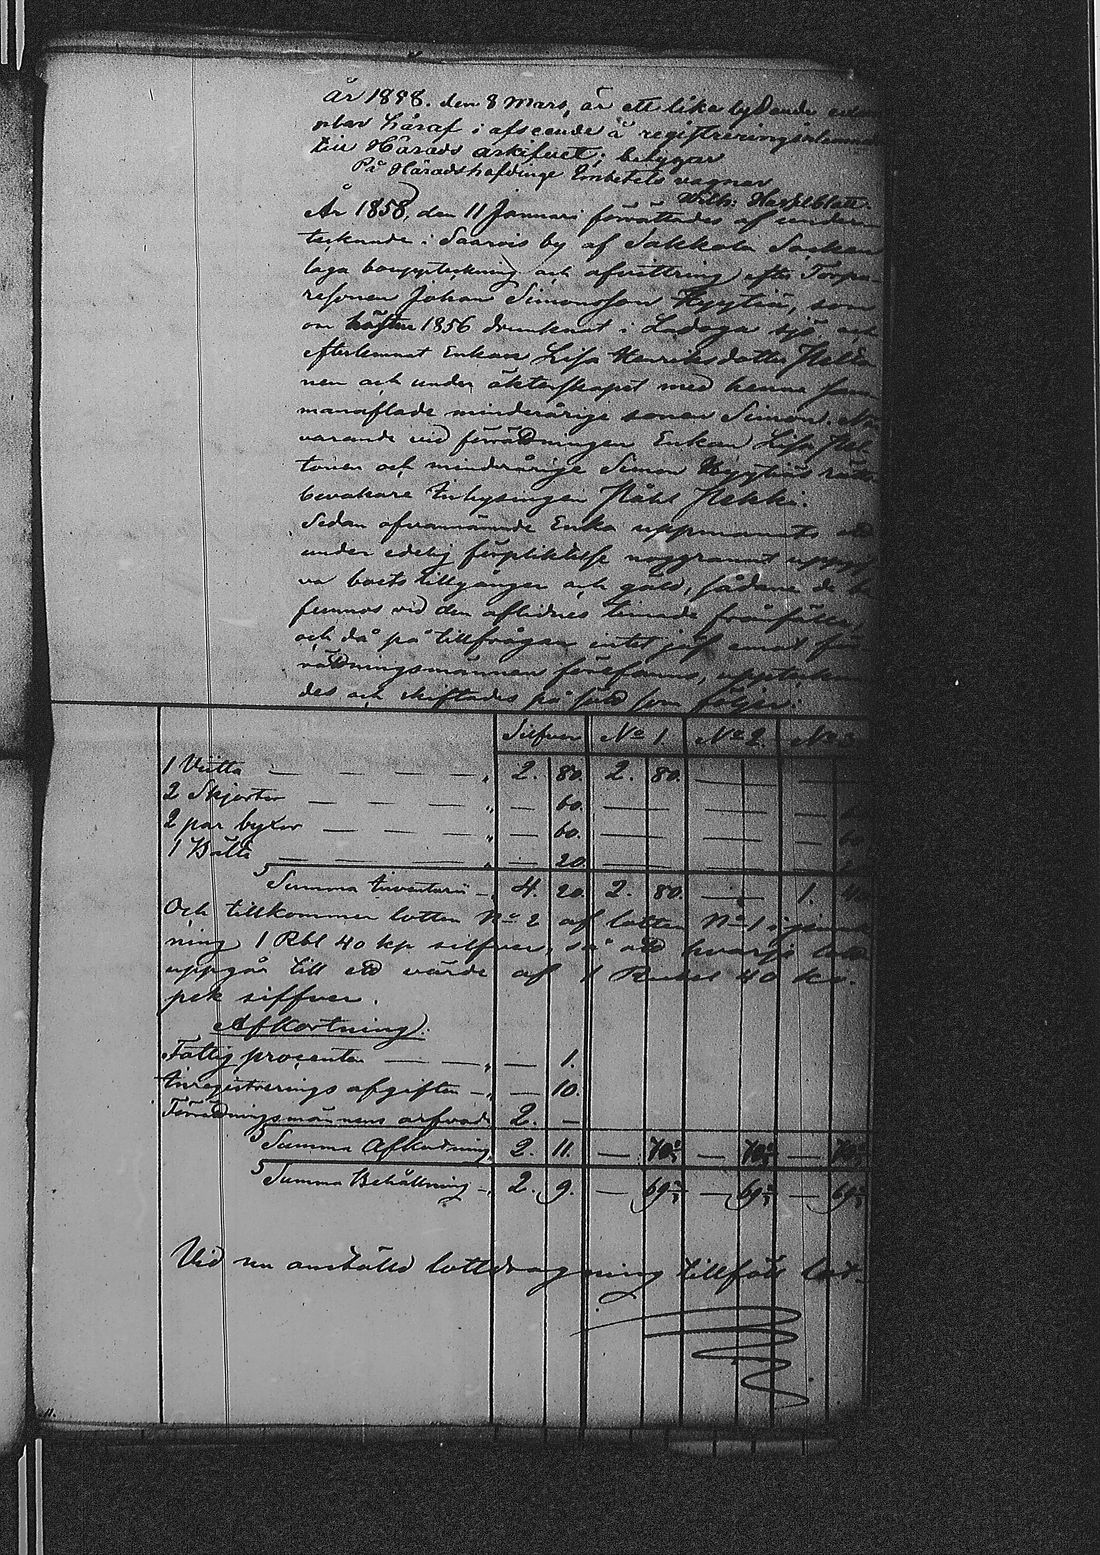 År 1898. den 8 Mars, är ett lika lydande exem
plar häraf i afseende å registrering inlemnad
till Härads arkifvet; betygar
På Häradshöfdinge Embetets vägnar
Wilh: Hasselblatt
År 1858, den 11 Januari förrättades af under
tecknade i Saarois by af Sakkola Socken
laga bouppteckning och afvittring efter Torpa-
resonen Johan Simonsson Hyytiä, som
om hösten 1856 drunknat i Ladoga sjö och
efterlemnat Enkan Lisa Henriksdotter
nen och under äktenskapet med henne sam
manaflade minderårige sonen Simon. När
varande vid förrättningen Enkan Lisa
tonen och minderårige Simon Hyytiäs rätts
bevakare Inhysingen Påhl Pekki.
Sedan ofvannämnde Enka uppmanats att
under edelig förpliktelse noggrannt uppgif
va boets tillgångar och gäld, sådane de be
funnos vid den aflidnes timade frånfälle,
och då på tillfrågan intet jäf emot för
rättningsmännen förefanns, uppteckna
des och skiftades på sätt som följer:
Silfver No 1. No 2. No 3.
1 Viitta — — — — „ 2. 80. 2. 80. — — —
2 Skjortor — — — — „ — 60. — — — 60
2 par byxor — — — „ — 60. — — — 60
1 Bälte — — — — „ — 20. — — — 20
Summa Inventarii — „ 4. 20. 2. 80. — — 1. 40
Och tillkommer lotten No 2 af lotten No 1 i jemk
ning 1 Rbl 40 kp silfver, så att hvarje lott
uppgår till ett värde af 1 Rubel 40 ko-
pek silfver.
Afkortning.
Fattig procenten — — — „ — 1.
Inregistrerings afgiften — „ — 10.
Förrättningsmännens arfvode 2. —
Summa Afkortning „ 2. 11. — 70 1/3 — 70 1/3 — 70 1/3
Summa Behållning — „ 2. 9. — 69 2/3 — 69 2/3 — 69 2/3
Vid nu anstäld lottdragning tillföll lot-